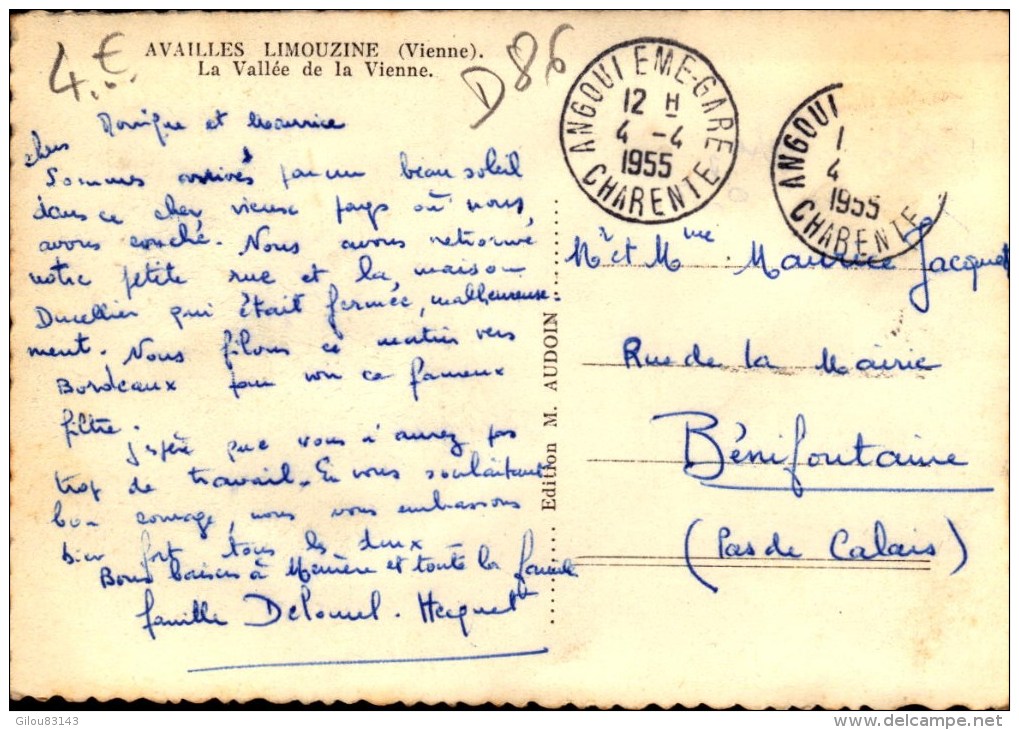 AVAILLES LIMOUZINE (Vienne).
La Vallée de la Vienne.
4.€
D86
ANGOULEME-GARE
12 H
4 -4
1955
CHARENTE
ANGOUL
1
4
1955
CHARENTE
chers et Maurice
Sommes arrivés par un beau soleil
dans ce cher vieux pays où nous
avons couché. Nous avons retrouvé
notre petite rue et la maison
Ducellier qui était fermée, malheureuse-
ment. Nous filons ce matin vers
Bordeaux pour voir ce fameux
filtre.
J'espère que vous n'aurez pas
trop de travail. En vous souhaitant
bon courage, nous vous embrassons
bien fort tous les deux
Bons baisers à et toute la famille
famille Hecquet
Edition M. AUDOIN
Mr et Mme Maurice Jacquet
Rue de la Mairie
Bénifontaine
(Pas de Calais)
Gilou83143
www.delcampe.net